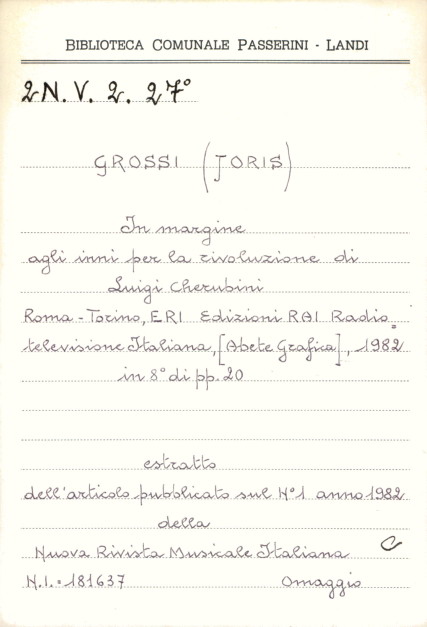 BIBLIOTECA COMUNALE PASSERINI - LANDI
2N. V. 2. 27°
GROSSI (JORIS)
In margine
agli inni per la rivoluzione di
Luigi Cherubini
Roma - Torino, ERI Edizioni RAI Radio=
televisione Italiana, [Abete Grafica], 1982
in 8° di pp. 20
estratto
dell'articolo pubblicato sul N°1 anno 1982
della
Nuova Rivista Musicale Italiana
C
N.I. = 181637 Omaggio